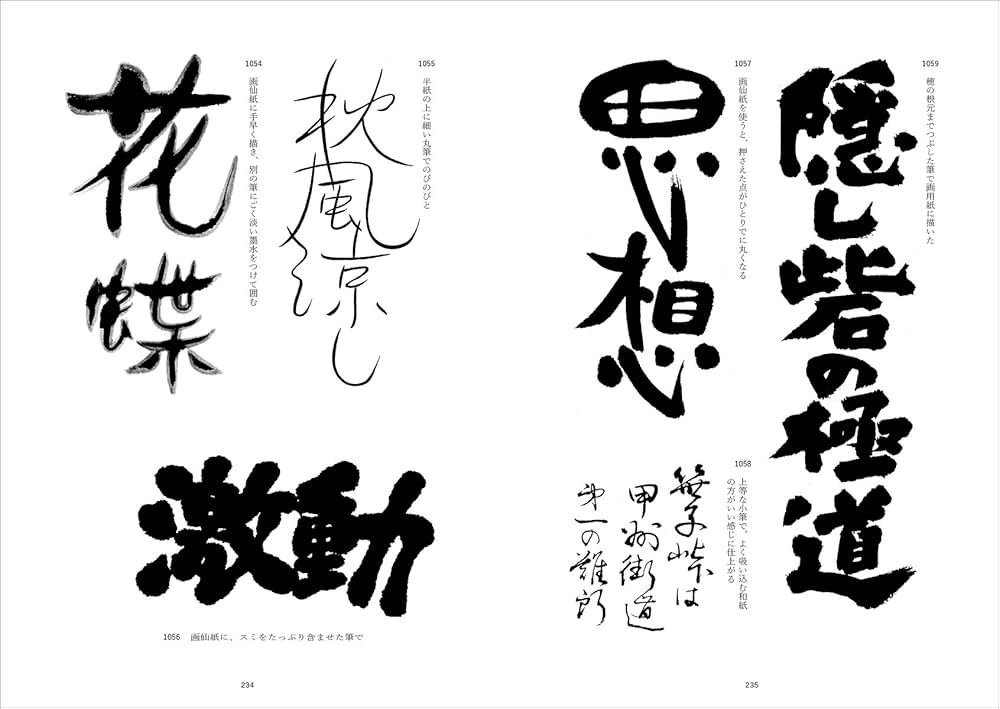 1054
画仙紙に手早く描き、別の筆にごく淡い墨水をつけて囲む
花
蝶
1055
半紙の上に細い丸筆でのびのびと
風涼し
激動
1056 画仙紙に、スミをたっぷり含ませた筆で
234
1057
画仙紙を使うと、押さえた点がひとりでに丸くなる
思想
1058
上等な小筆で、よく吸い込む和紙
の方がいい感じに仕上がる
笹子峠は
甲州街道
第一の難所
1059
穂の根元までつぶした筆で画用紙に描いた
隠し砦の極道
235